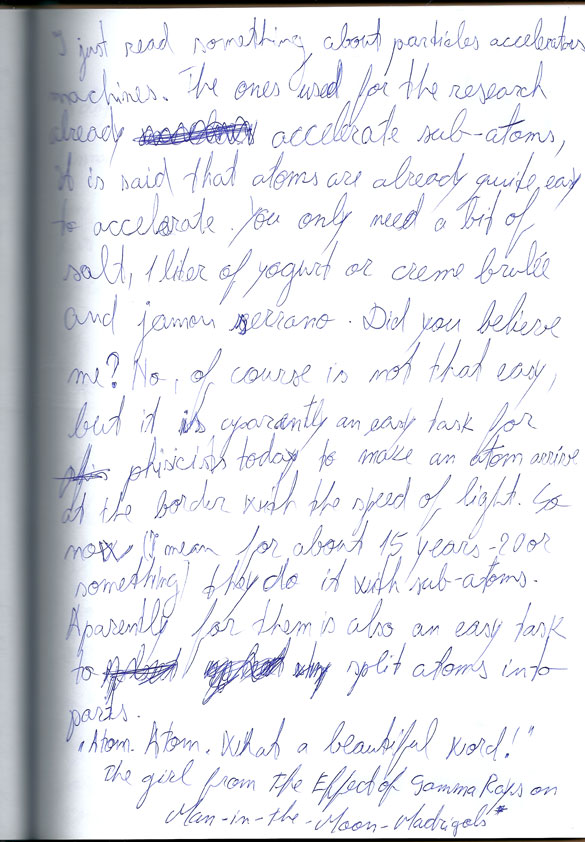 I just read something about particles accelerators
machines. The ones used for the research
already accelerate sub-atoms,
it is said that atoms are already quite easy
to accelerate. You only need a bit of
salt, 1 liter of yogurt or creme brulée
and jamon serrano. Did you believe
me? No, of course is not that easy,
but it is aparently an easy task for
phisicists today to make an atom arrive
at the border with the speed of light. So
now (I mean for about 15 years - 20 or
something) they do it with sub-atoms.
Aparently for them is also an easy task
to split atoms into
parts.
"Atom. Atom. What a beautiful word!"
The girl from The Effect of Gamma Rays on
Man-in-the-Moon-Madrigols*